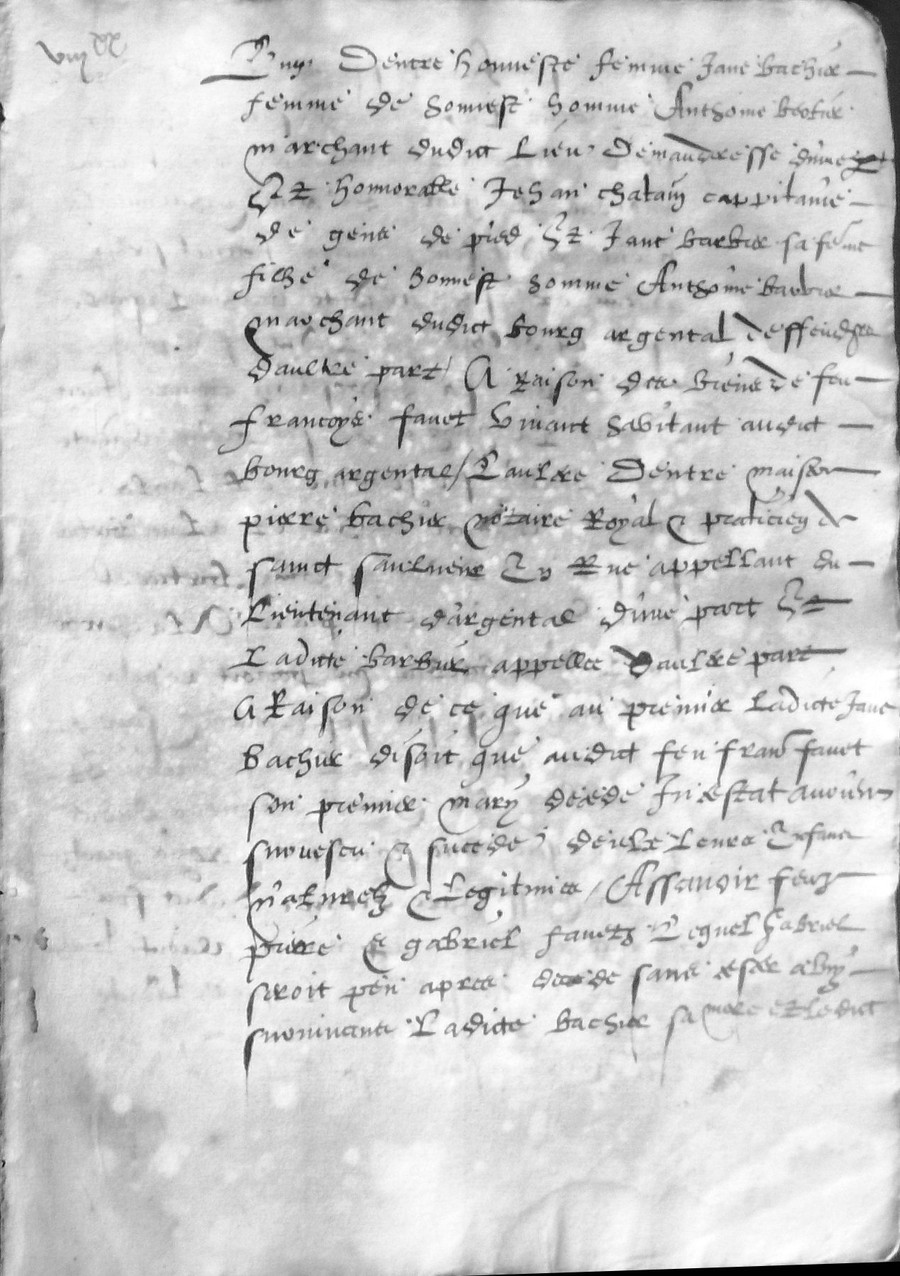 viii xx
L'ung d'entre honneste femme Jane Bachier
femme de honnest homme Anthoine
marchant dudict lieu demanderesse d'une part
Et honnorable Jehan Chatain cappitaine
de gens de pied Et Jane Barbier sa femme
filhe de honnest homme Anthoine Barbier
marchant dudict bourg argental deffendeurs
daultre part / A Raison des biens de feu
francoys favet vivant habitant audict
bourg argental / L'aultre Dentre maistre
pierre bachier notaire Royal & praticien de
sainct saulveur En Rue appellant du
Lieutenant d'argental d'une part Et
Ladicte barbier appellee daultre part
A Raison de ce que au premier Ladicte Jane
bachier disoit que audict feu franc favet
son premier mary decede Intestat avoient
survescu & succede deulx leurs Enfans
naturelz & legitimes / Assavoir feuz
pierre & gabriel favetz Lequel gabriel
seroit peu apres decede sans
survivante Ladicte bachier sa mere et ledict